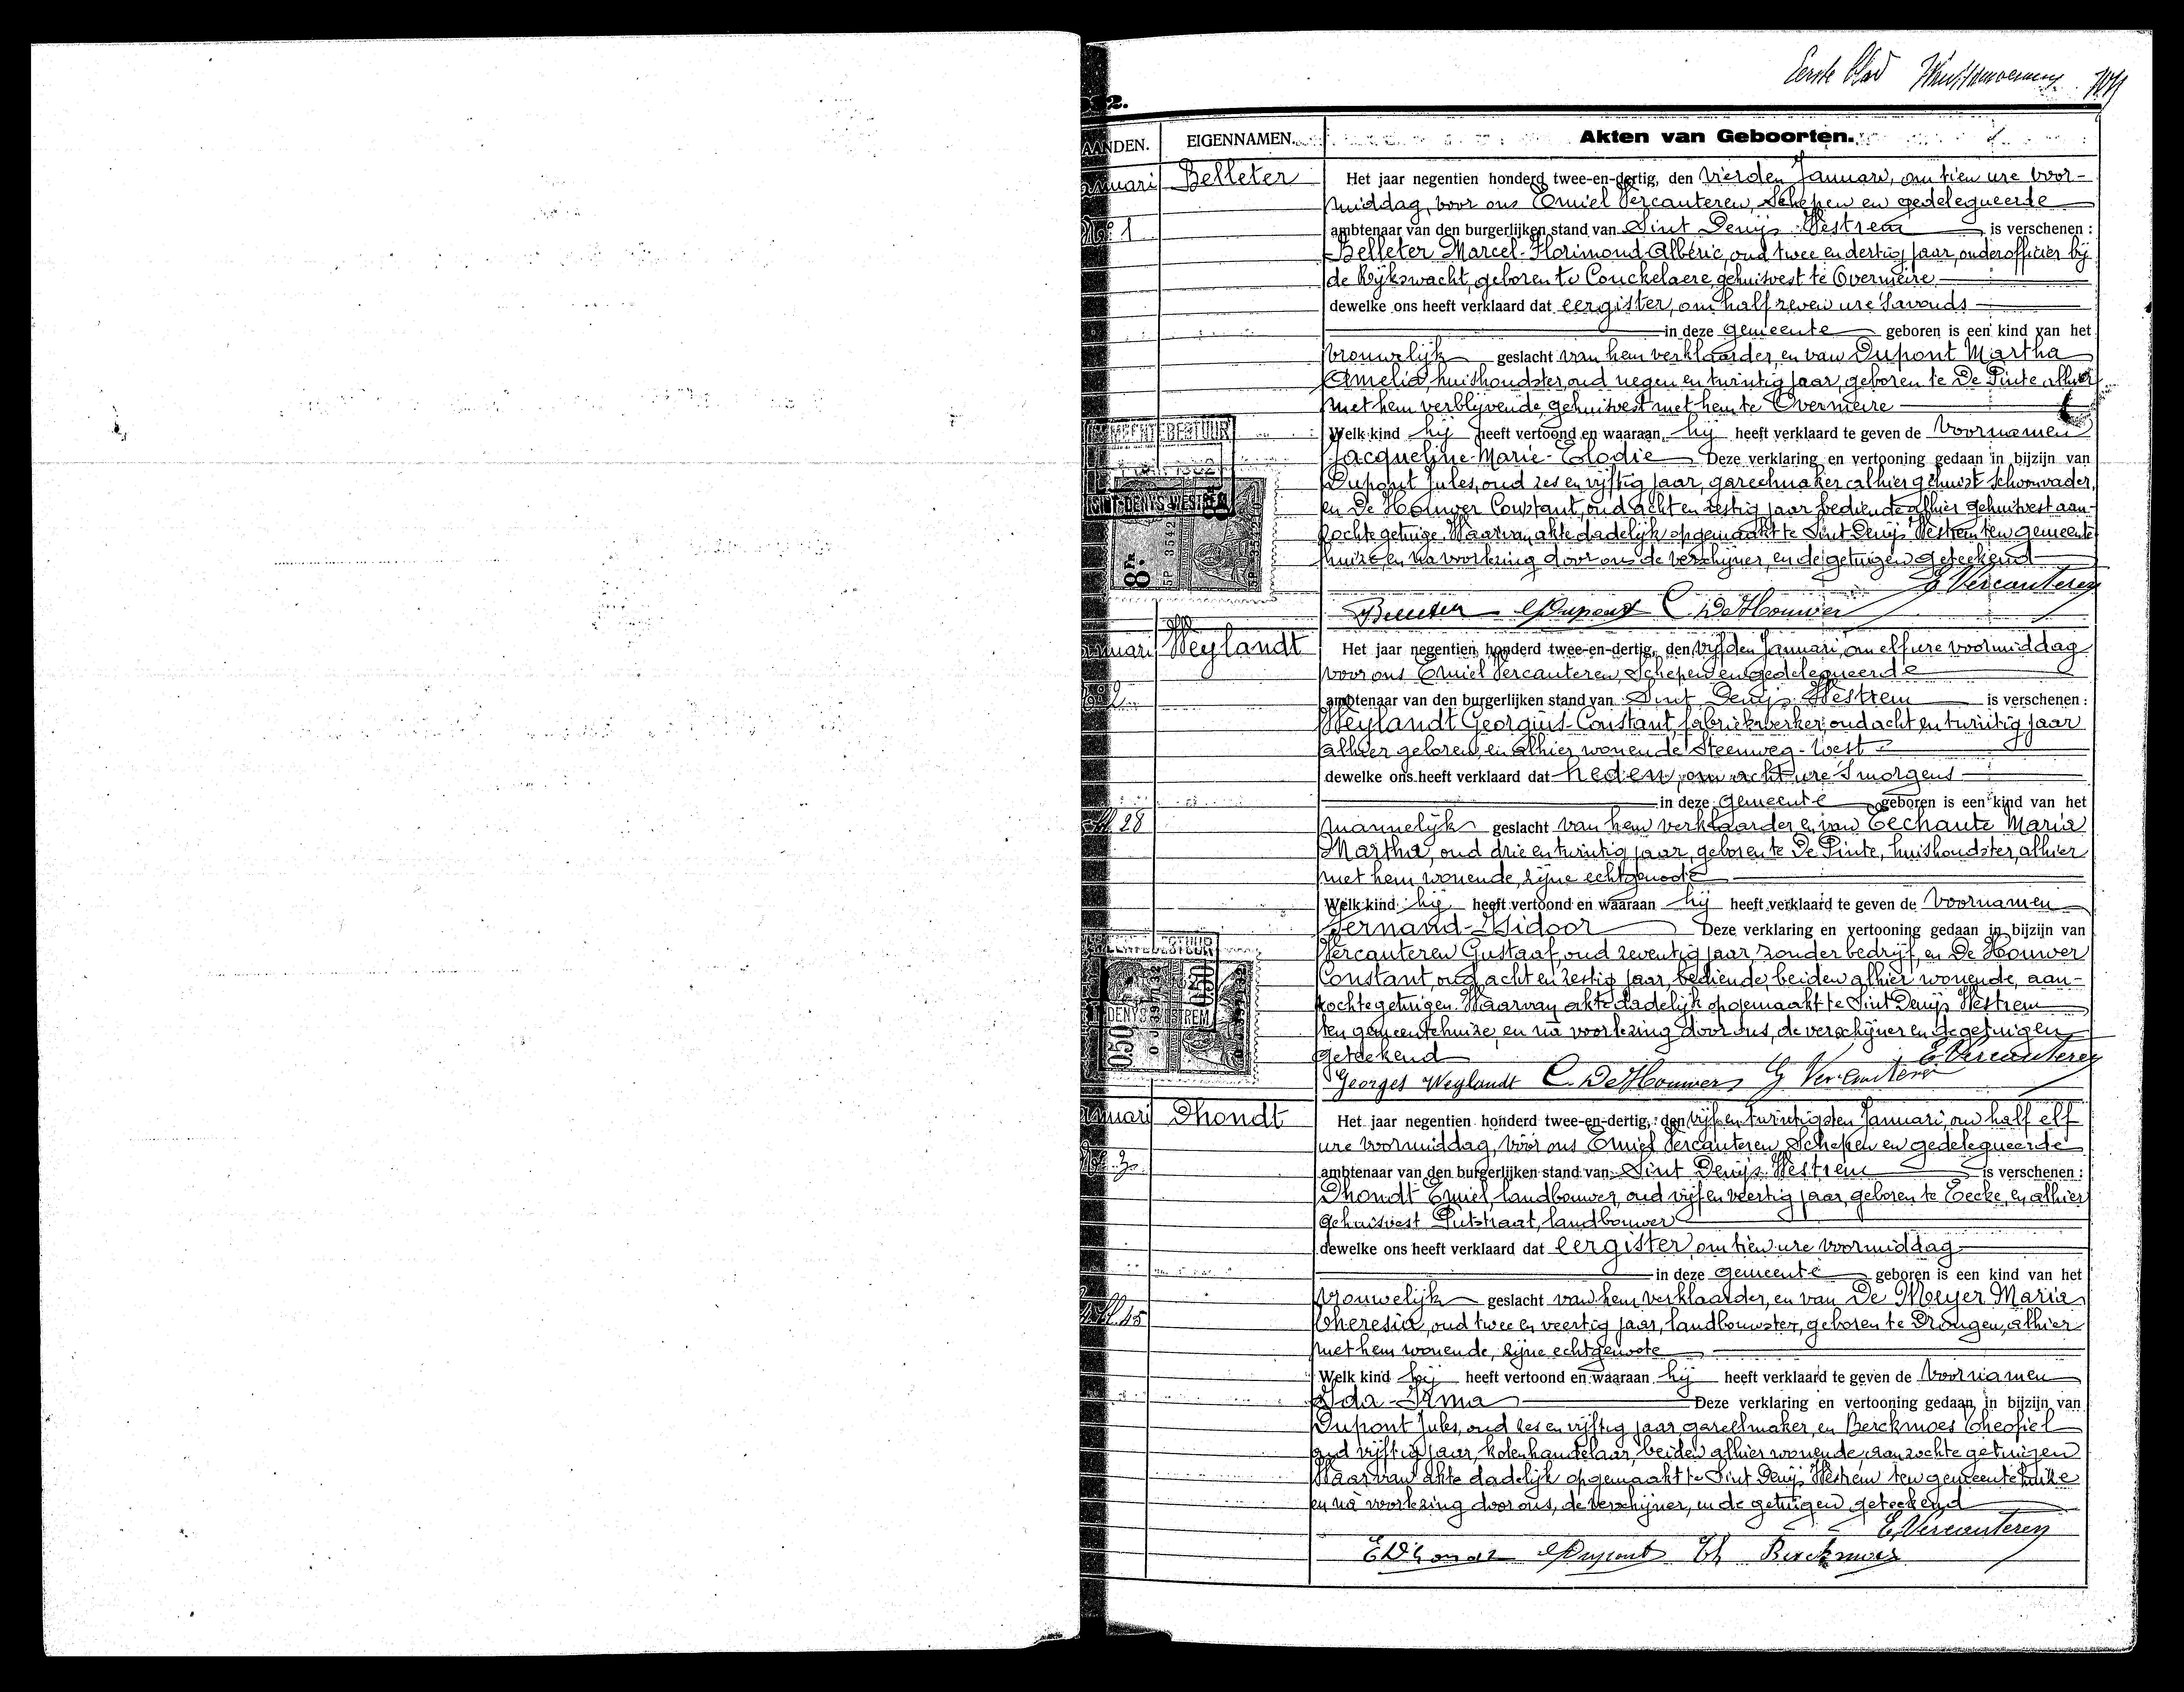 Eerste blad
32.
AANDEN.
EIGENNAMEN.
Akten van Geboorten.
anuari
Belleter
No 1
Het jaar negentien honderd twee-en-dertig, den vierden Januari, om tien ure voor-
middag, voor ons Emiel Vercauteren, Schepen en gedelegueerde
ambtenaar van den burgerlijken stand van Sint Denijs Westrem is verschenen :
Belleter Marcel-Florimond-Albéric, oud twee en dertig jaar, onderofficier bij
de Rijkswacht, geboren te Couckelaere, gehuisvest te Overmeire
dewelke ons heeft verklaard dat eergister, om half zeven ure 's avonds
in deze gemeente geboren is een kind van het
vrouwelijk geslacht van hem verklaarder, en van Dupont Martha
Amelia, huishoudster, oud negen en twintig jaar, geboren te De Pinte, alhier
met hem verblijvende, gehuisvest met hem te Overmeire
Welk kind hij heeft vertoond en waaraan hij heeft verklaard te geven de voornamen
Jacqueline-Marie-Elodie Deze verklaring en vertooning gedaan in bijzijn van
Dupont Jules, oud zes en vijftig jaar, gareelmaker alhier gehuist schoonvader,
en De Houwer Constant, oud acht en zestig jaar bediende alhier gehuisvest aan-
zochte getuige. Waarvan akte dadelijk opgemaakt te Sint Denijs Westrem ten gemeente
huize, en na voorlezing door ons de verschijner, en de getuigen geteekend
E Vercauteren
Belleter Dupont C. De Houwer
GEMEENTEBESTUUR
SINT-DENYS-WESTREM
8 Fr
5P 3542
anuari
Weylandt
2
Het jaar negentien honderd twee-en-dertig, den vijfden Januari, om elf ure voormiddag
voor ons Emiel Vercauteren, Schepen en gedelegueerde
ambtenaar van den burgerlijken stand van Sint Denijs Westrem is verschenen :
Weylandt Georgius Constant, fabriekwerker, oud acht en twintig jaar
alhier geboren, en alhier wonende Steenweg-West
dewelke ons heeft verklaard dat heden, om acht ure 's morgens
in deze gemeente geboren is een kind van het
28
mannelijk geslacht van hem verklaarder en van Eechaute Maria
Martha, oud drie en twintig jaar, geboren te De Pinte, huishoudster, alhier
met hem wonende, zijne echtgenoote
Welk kind hij heeft vertoond en waaraan hij heeft verklaard te geven de voornamen
Fernand-Isidoor Deze verklaring en vertooning gedaan in bijzijn van
Vercauteren Gustaaf, oud zeventig jaar, zonder bedrijf, en De Houwer
Constant, oud acht en zestig jaar, bediende, beiden alhier wonende, aan-
zochte getuigen. Waarvan akte dadelijk opgemaakt te Sint Denijs Westrem
ten gemeentehuize, en na voorlezing door ons, de verschijner en de getuigen
geteekend
E. Vercauteren
Georges Weylandt C. De Houwer G Vercauteren
DENYS WESTREM
0.50
anuari
Dhondt
3
Het jaar negentien honderd twee-en-dertig, den vijf en twintigsten Januari, om half elf
ure voormiddag, voor ons Emiel Vercauteren, Schepen en gedelegueerde
ambtenaar van den burgerlijken stand van Sint Denijs Westrem is verschenen :
Dhondt Emiel, landbouwer, oud vijf en veertig jaar, geboren te Eecke, en alhier
gehuisvest Putstraat, landbouwer
dewelke ons heeft verklaard dat eergister, om tien ure voormiddag
in deze gemeente geboren is een kind van het
45
vrouwelijk geslacht van hem verklaarder, en van De Meyer Maria
Theresia, oud twee en veertig jaar, landbouwster, geboren te Drongen, alhier
met hem wonende, zijne echtgenoote
Welk kind hij heeft vertoond en waaraan hij heeft verklaard te geven de voornamen
Ida-Irma Deze verklaring en vertooning gedaan in bijzijn van
Dupont Jules, oud zes en vijftig jaar gareelmaker, en Berckmoes Theofiel
oud vijftig jaar, kolenhandelaar, beiden alhier wonende, aanzochte getuigen
Waarvan akte dadelijk opgemaakt te Sint Denijs Westrem ten gemeentehuize
en na voorlezing door ons, de verschijner, en de getuigen geteekend
E. Vercauteren
E Dhondt Dupont Th Berckmoes